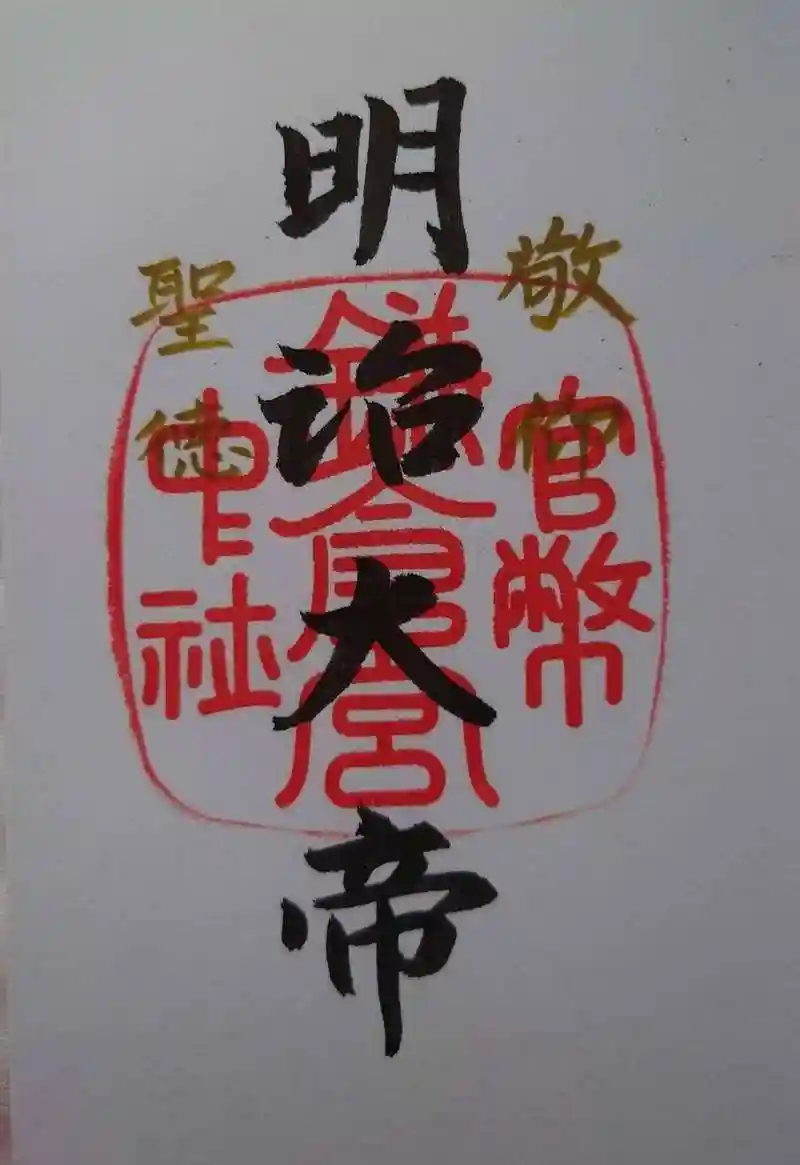 敬仰
官幣
明治大帝
鎌倉宮
聖徳
中社